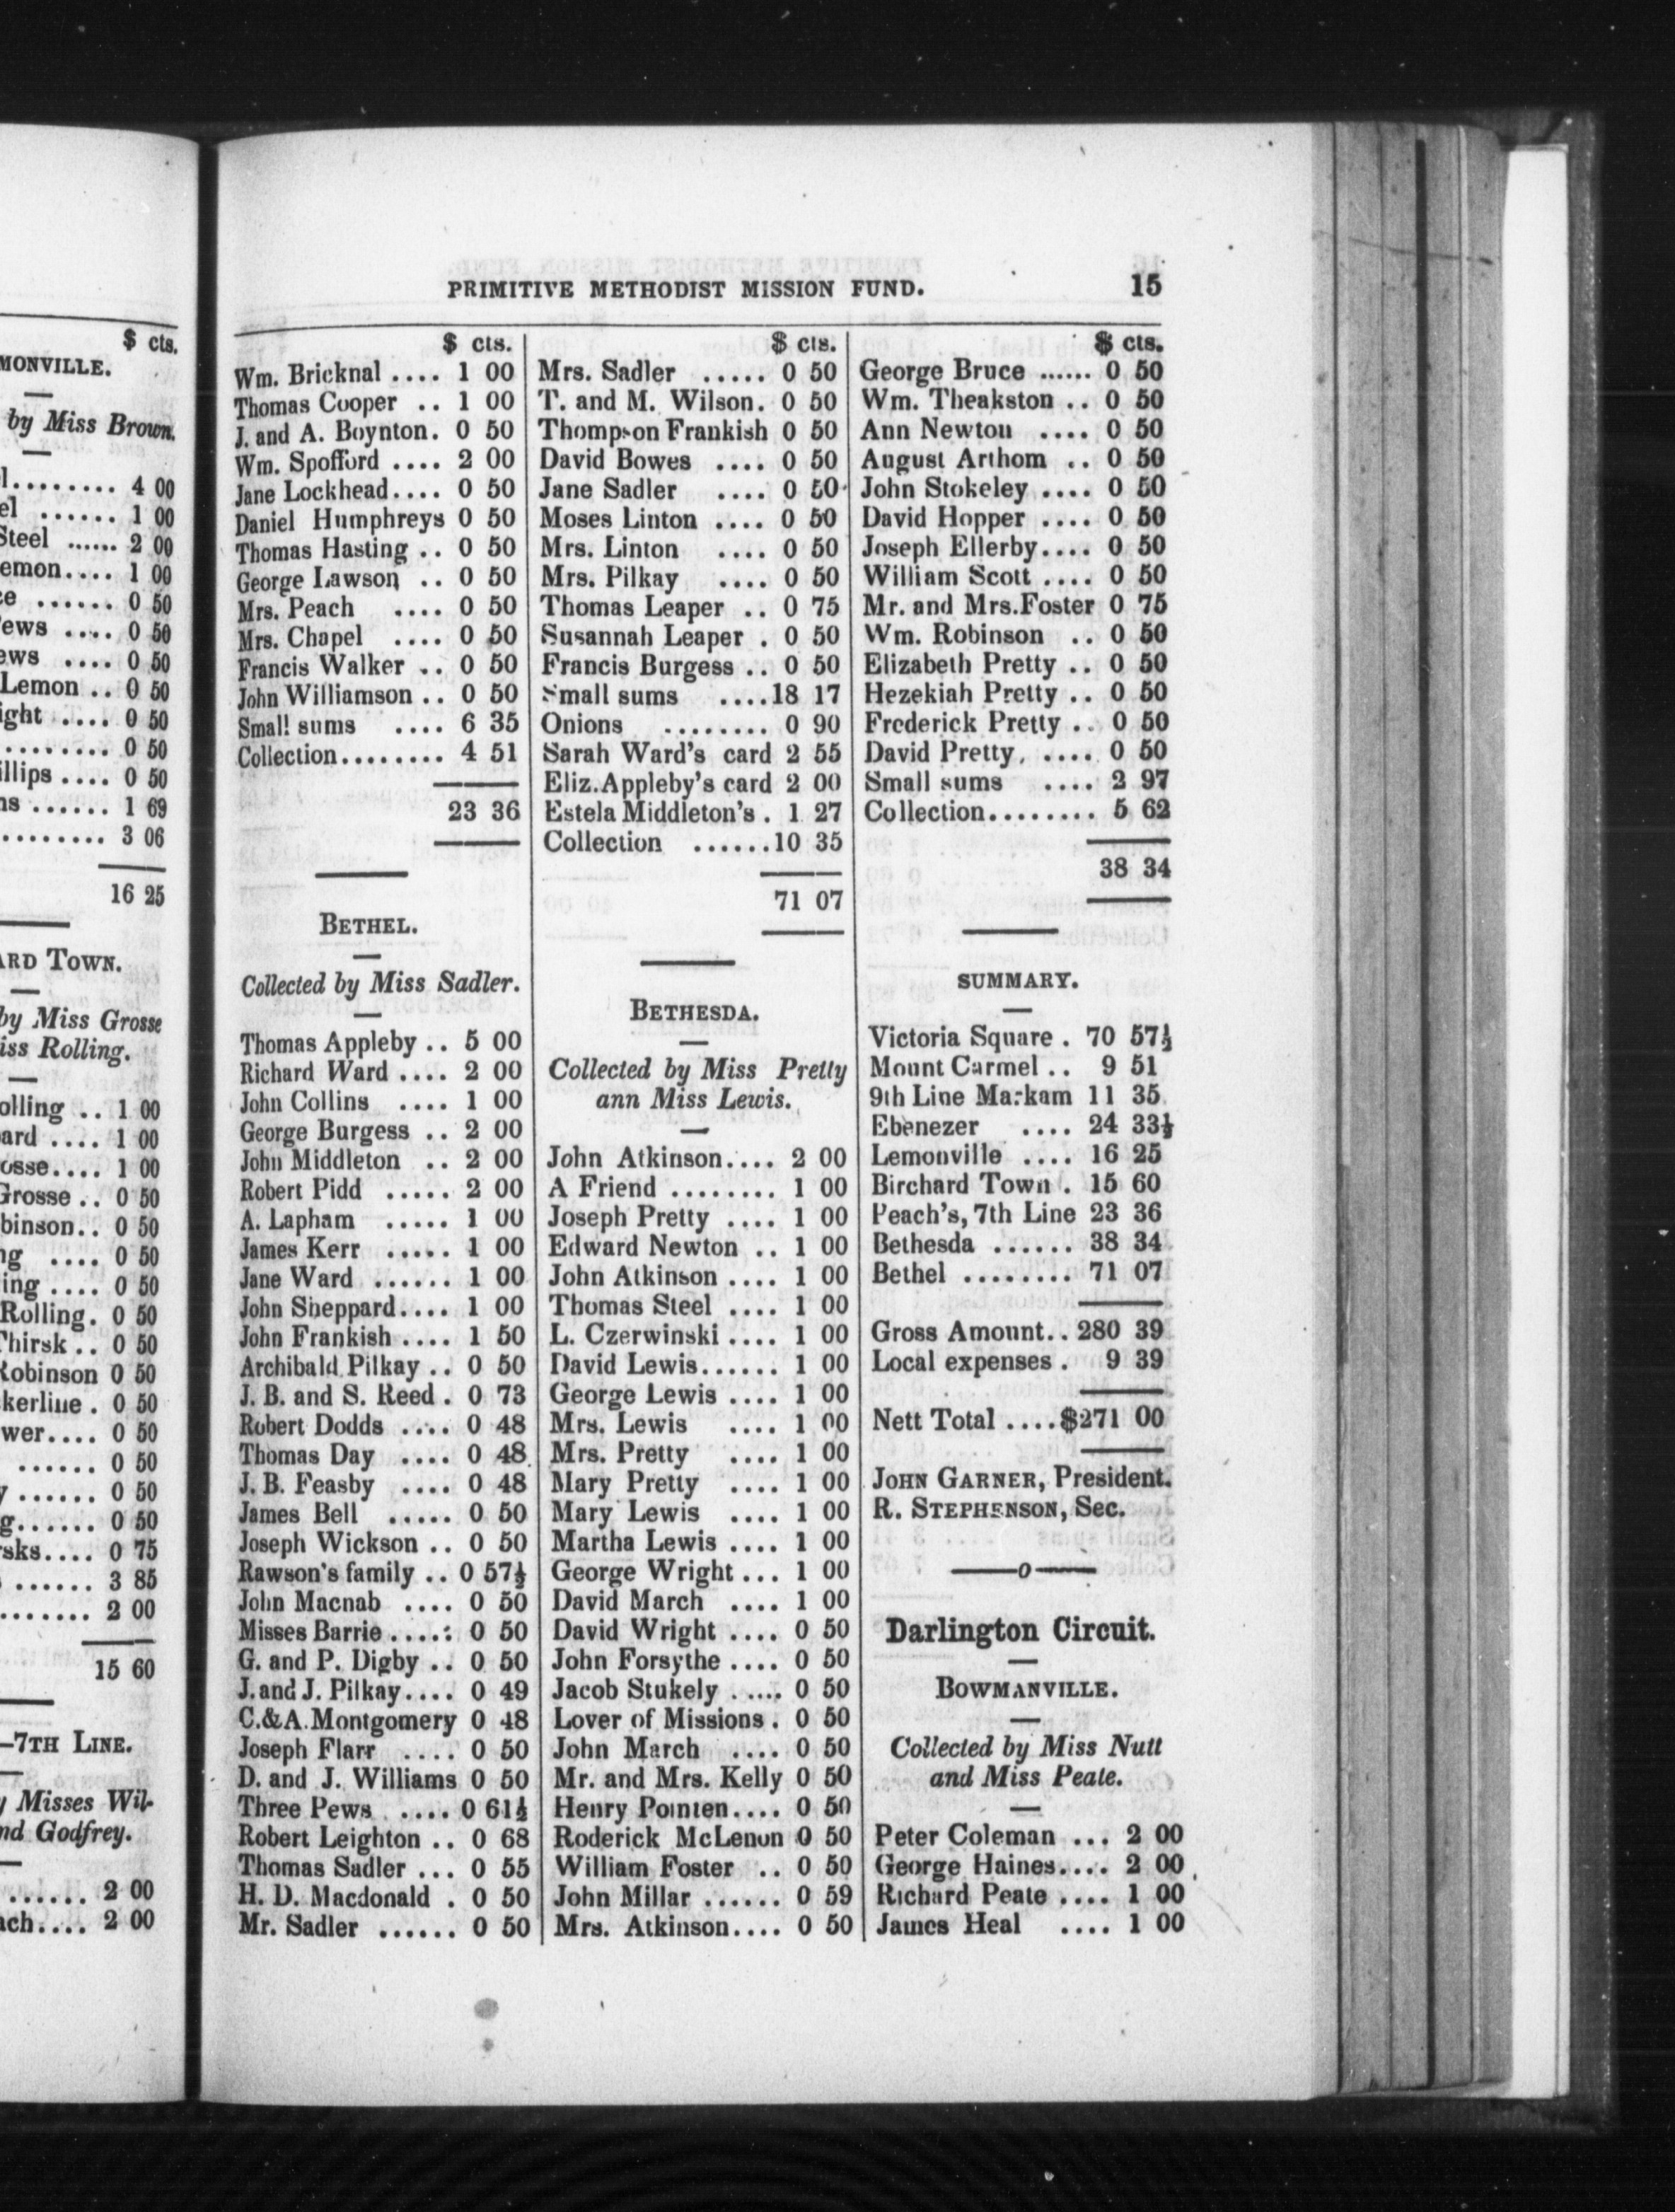 $ cts.
MONVILLE.
by Miss Brown.
l........ 4 00
el ...... 1 00
Steel ...... 2 00
emon.... 1 00
ce ...... 0 50
ews .... 0 50
ews .... 0 50
Lemon .. 0 50
ight .... 0 50
......... 0 50
illips .... 0 50
ns ...... 1 69
......... 3 06
16 25
ARD TOWN.
by Miss Grosse
iss Rolling.
olling .. 1 00
ard .... 1 00
osse.... 1 00
Grosse .. 0 50
binson.. 0 50
ng .... 0 50
ing .... 0 50
Rolling. 0 50
Thirsk .. 0 50
Robinson 0 50
kerline . 0 50
wer.... 0 50
...... 0 50
y ...... 0 50
g...... 0 50
rsks.... 0 75
...... 3 85
....... 2 00
15 60
—7TH LINE.
y Misses Wil-
nd Godfrey.
...... 2 00
ach.... 2 00
PRIMITIVE METHODIST MISSION FUND. 15
$ cts.
Wm. Bricknal .... 1 00
Thomas Cooper .. 1 00
J. and A. Boynton. 0 50
Wm. Spofford .... 2 00
Jane Lockhead.... 0 50
Daniel Humphreys 0 50
Thomas Hasting .. 0 50
George Lawson .. 0 50
Mrs. Peach .... 0 50
Mrs. Chapel .... 0 50
Francis Walker .. 0 50
John Williamson .. 0 50
Small sums .... 6 35
Collection........ 4 51
23 36
BETHEL.
Collected by Miss Sadler.
Thomas Appleby .. 5 00
Richard Ward .... 2 00
John Collins .... 1 00
George Burgess .. 2 00
John Middleton .. 2 00
Robert Pidd ..... 2 00
A. Lapham ..... 1 00
James Kerr ..... 1 00
Jane Ward ...... 1 00
John Sheppard.... 1 00
John Frankish .... 1 50
Archibald Pilkay .. 0 50
J. B. and S. Reed . 0 73
Robert Dodds .... 0 48
Thomas Day .... 0 48
J. B. Feasby .... 0 48
James Bell ..... 0 50
Joseph Wickson .. 0 50
Rawson's family .. 0 57½
John Macnab .... 0 50
Misses Barrie ....: 0 50
G. and P. Digby .. 0 50
J. and J. Pilkay.... 0 49
C.&A.Montgomery 0 48
Joseph Flarr .... 0 50
D. and J. Williams 0 50
Three Pews .... 0 61½
Robert Leighton .. 0 68
Thomas Sadler ... 0 55
H. D. Macdonald . 0 50
Mr. Sadler ...... 0 50
$ cts.
Mrs. Sadler ..... 0 50
T. and M. Wilson. 0 50
Thompson Frankish 0 50
David Bowes .... 0 50
Jane Sadler .... 0 50
Moses Linton .... 0 50
Mrs. Linton .... 0 50
Mrs. Pilkay .... 0 50
Thomas Leaper .. 0 75
Susannah Leaper . 0 50
Francis Burgess .. 0 50
Small sums ....18 17
Onions ........ 0 90
Sarah Ward's card 2 55
Eliz.Appleby's card 2 00
Estela Middleton's . 1 27
Collection ......10 35
71 07
BETHESDA.
Collected by Miss Pretty
ann Miss Lewis.
John Atkinson.... 2 00
A Friend ........ 1 00
Joseph Pretty .... 1 00
Edward Newton .. 1 00
John Atkinson .... 1 00
Thomas Steel .... 1 00
L. Czerwinski .... 1 00
David Lewis...... 1 00
George Lewis .... 1 00
Mrs. Lewis .... 1 00
Mrs. Pretty .... 1 00
Mary Pretty .... 1 00
Mary Lewis .... 1 00
Martha Lewis .... 1 00
George Wright ... 1 00
David March .... 1 00
David Wright .... 0 50
John Forsythe .... 0 50
Jacob Stukely ..... 0 50
Lover of Missions . 0 50
John March .... 0 50
Mr. and Mrs. Kelly 0 50
Henry Pointen.... 0 50
Roderick McLenon 0 50
William Foster .. 0 50
John Millar ...... 0 59
Mrs. Atkinson.... 0 50
$ cts.
George Bruce ...... 0 50
Wm. Theakston .. 0 50
Ann Newton .... 0 50
August Arthom .. 0 50
John Stokeley .... 0 50
David Hopper .... 0 50
Joseph Ellerby.... 0 50
William Scott .... 0 50
Mr. and Mrs.Foster 0 75
Wm. Robinson .. 0 50
Elizabeth Pretty .. 0 50
Hezekiah Pretty .. 0 50
Frederick Pretty .. 0 50
David Pretty, .... 0 50
Small sums .... 2 97
Collection........ 5 62
38 34
SUMMARY.
Victoria Square . 70 57½
Mount Carmel .. 9 51
9th Line Markam 11 35
Ebenezer .... 24 33½
Lemonville .... 16 25
Birchard Town . 15 60
Peach's, 7th Line 23 36
Bethesda ...... 38 34
Bethel ........ 71 07
Gross Amount.. 280 39
Local expenses . 9 39
Nett Total ....$271 00
JOHN GARNER, President.
R. STEPHENSON, Sec.
——o——
Darlington Circuit.
BOWMANVILLE.
Collected by Miss Nutt
and Miss Peate.
Peter Coleman ... 2 00
George Haines.... 2 00
Richard Peate .... 1 00
James Heal .... 1 00